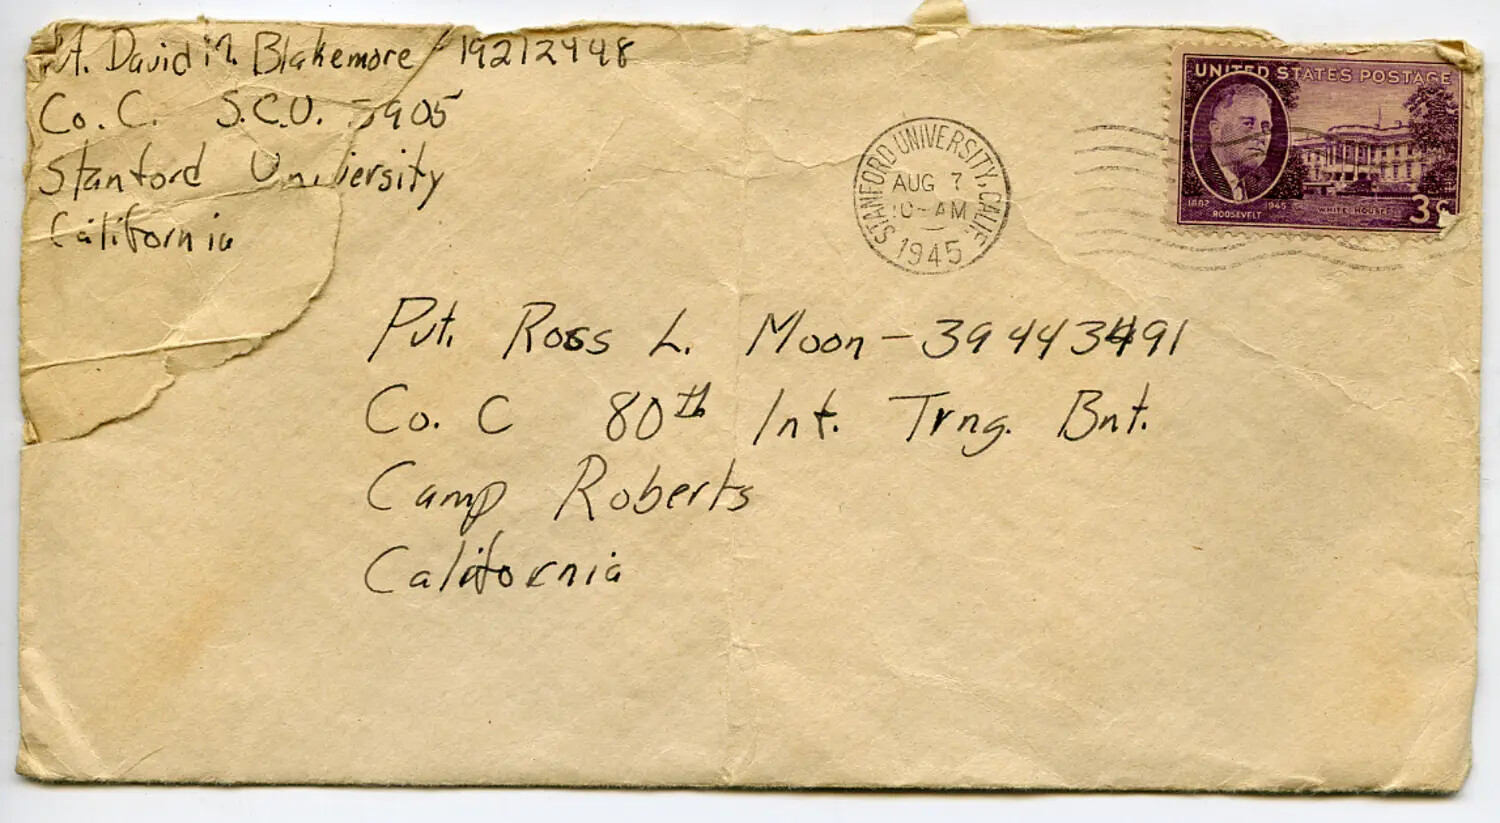 Pvt. David M. Blakemore 19212448
Co. C. S.C.U. 3905
Stanford University
California
STANFORD UNIVERSITY, CALIF.
AUG 7
10-AM
1945
UNITED STATES POSTAGE
1882 1945
ROOSEVELT
WHITE HOUSE
3¢
Pvt. Ross L. Moon - 39443491
Co. C 80th Inf. Trng. Bnt.
Camp Roberts
California